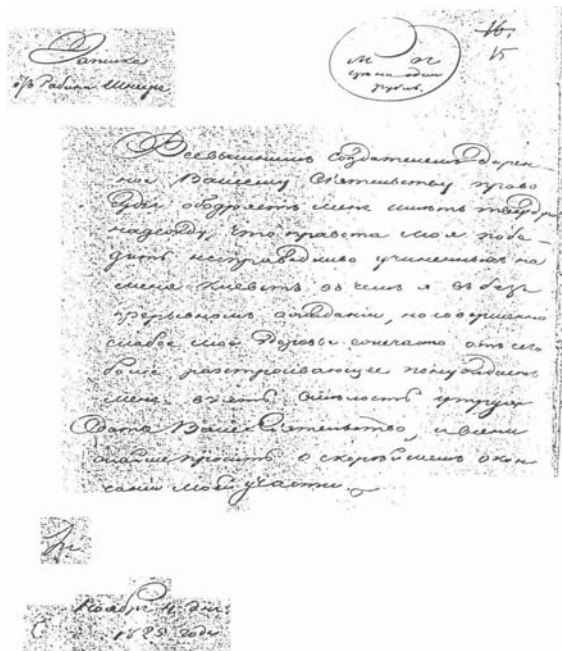 Записка
о/ѣ Рабина Шнеура
М П
сужна один
рубль.
16,
15
Всевышнимъ создателемъ дарен-
ное Вашему Сіятельству право
судьи ободряетъ меня имѣть твердую
надежду, что правота моя побе-
дитъ несправедливо учиненныя на
меня клевѣты, въ чемъ я въ без-
прерывномъ ожиданіи, но совершенно
слабое мое здоровье отъ сего
более разстроивающее понуждаетъ
меня взять смѣлость утруж-
дать Ваше Сіятельство, и всени-
жайше просить о скорѣйшемъ окон-
чаніи моей участи.
Ноября 4 дня
1825 года